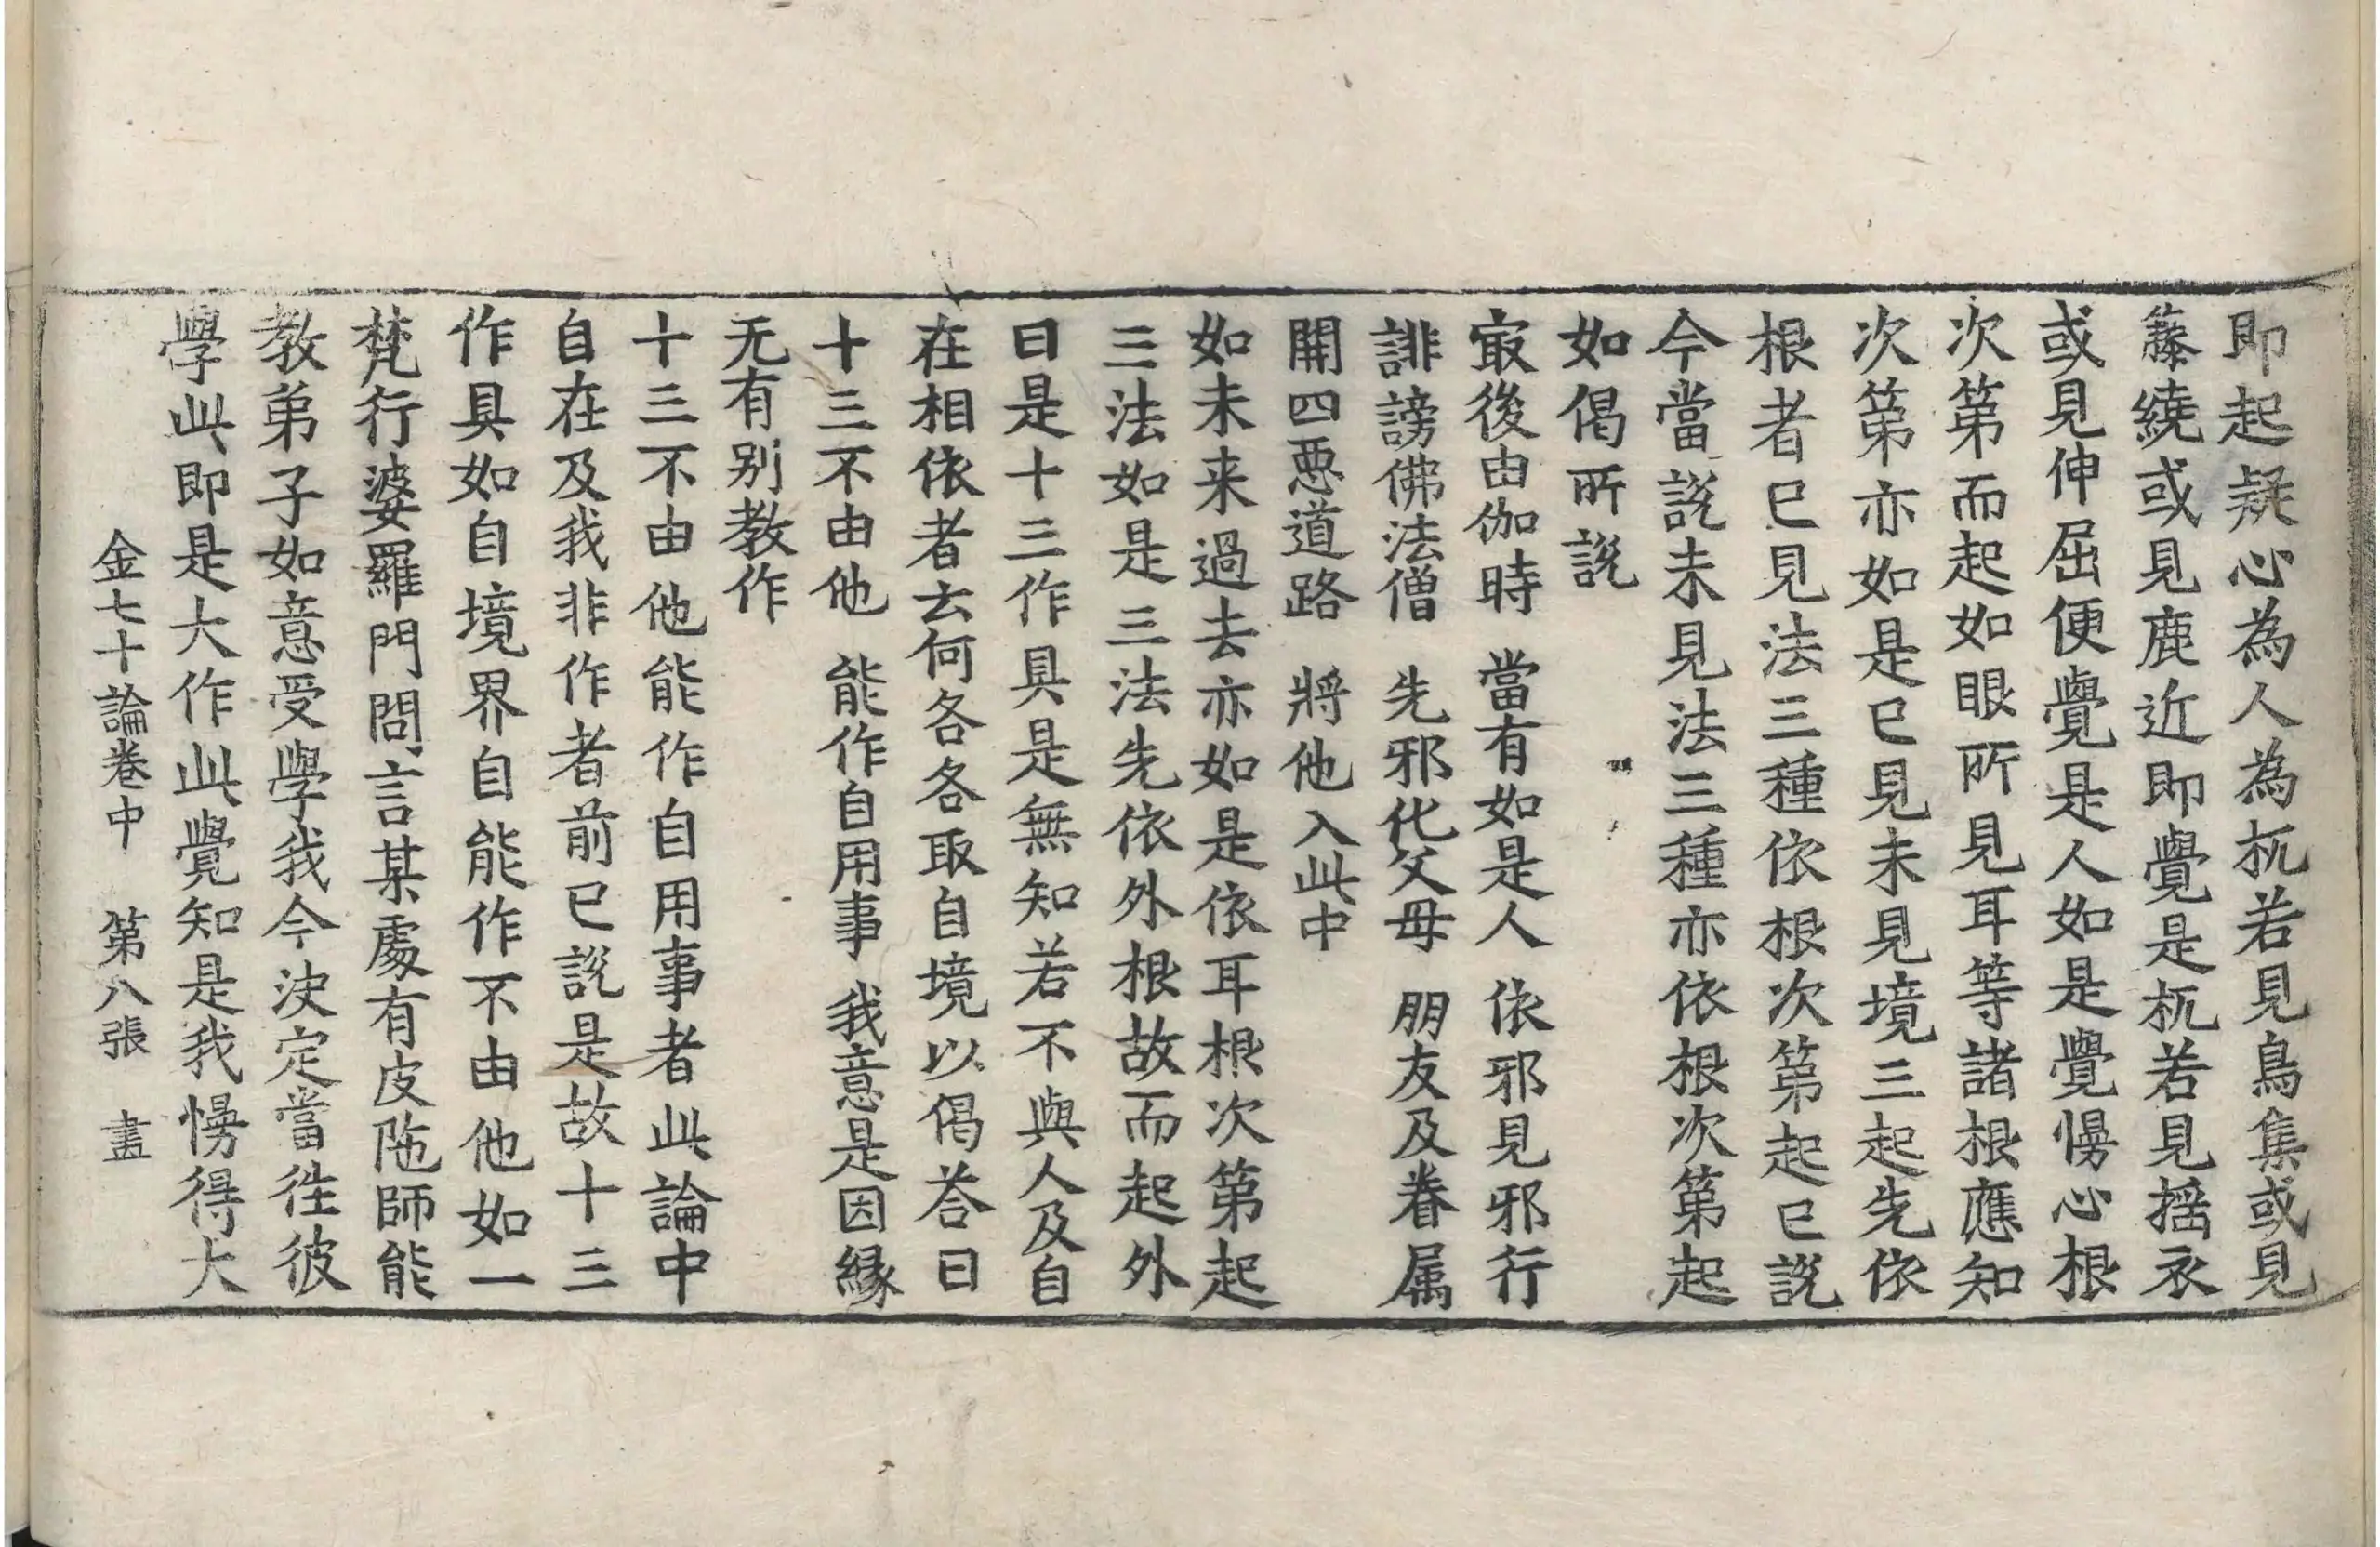 即起疑心為人為杌若見鳥集或見
籐繞或見鹿近即覺是杌若見搖衣
或見伸屈便覺是人如是覺慢心根
次第而起如眼所見耳等諸根應知
次第亦如是已見未見境三起先依
根者已見法三種依根次第起已說
今當說未見法三種亦依根次第起
如偈所說
㝡後由伽時 當有如是人 依邪見邪行
誹謗佛法僧 先邪化父母 朋友及眷属
開四惡道路 將他入此中
如未来過去亦如是依耳根次第起
三法如是三法先依外根故而起外
曰是十三作具是無知若不與人及自
在相依者云何各各取自境以偈荅曰
十三不由他 能作自用事 我意是因緣
无有别教作
十三不由他能作自用事者此論中
自在及我非作者前已說是故十三
作具如自境界自能作不由他如一
梵行婆羅門問言某處有皮陁師能
教弟子如意受學我今决定當徃彼
學此即是大作此覺知是我慢得大
金七十論卷中 第八張 盡